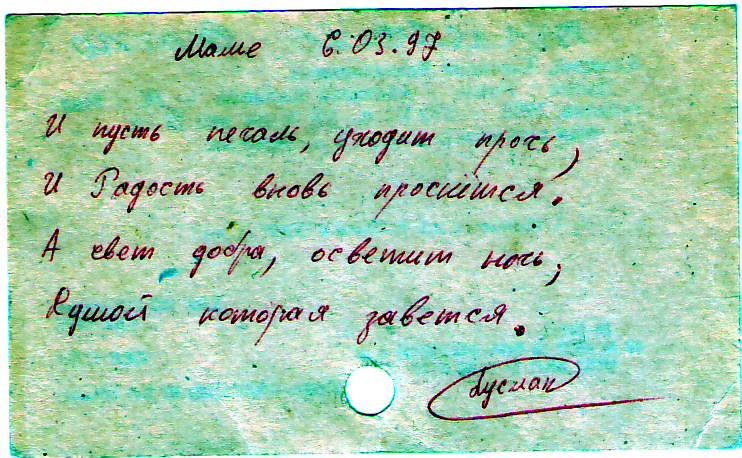 Маме 6.03.97
И пусть печаль, уходит прочь,
И Радость вновь проснётся.
А свет добра, осветит ночь,
Душой которая завется.
Руслан